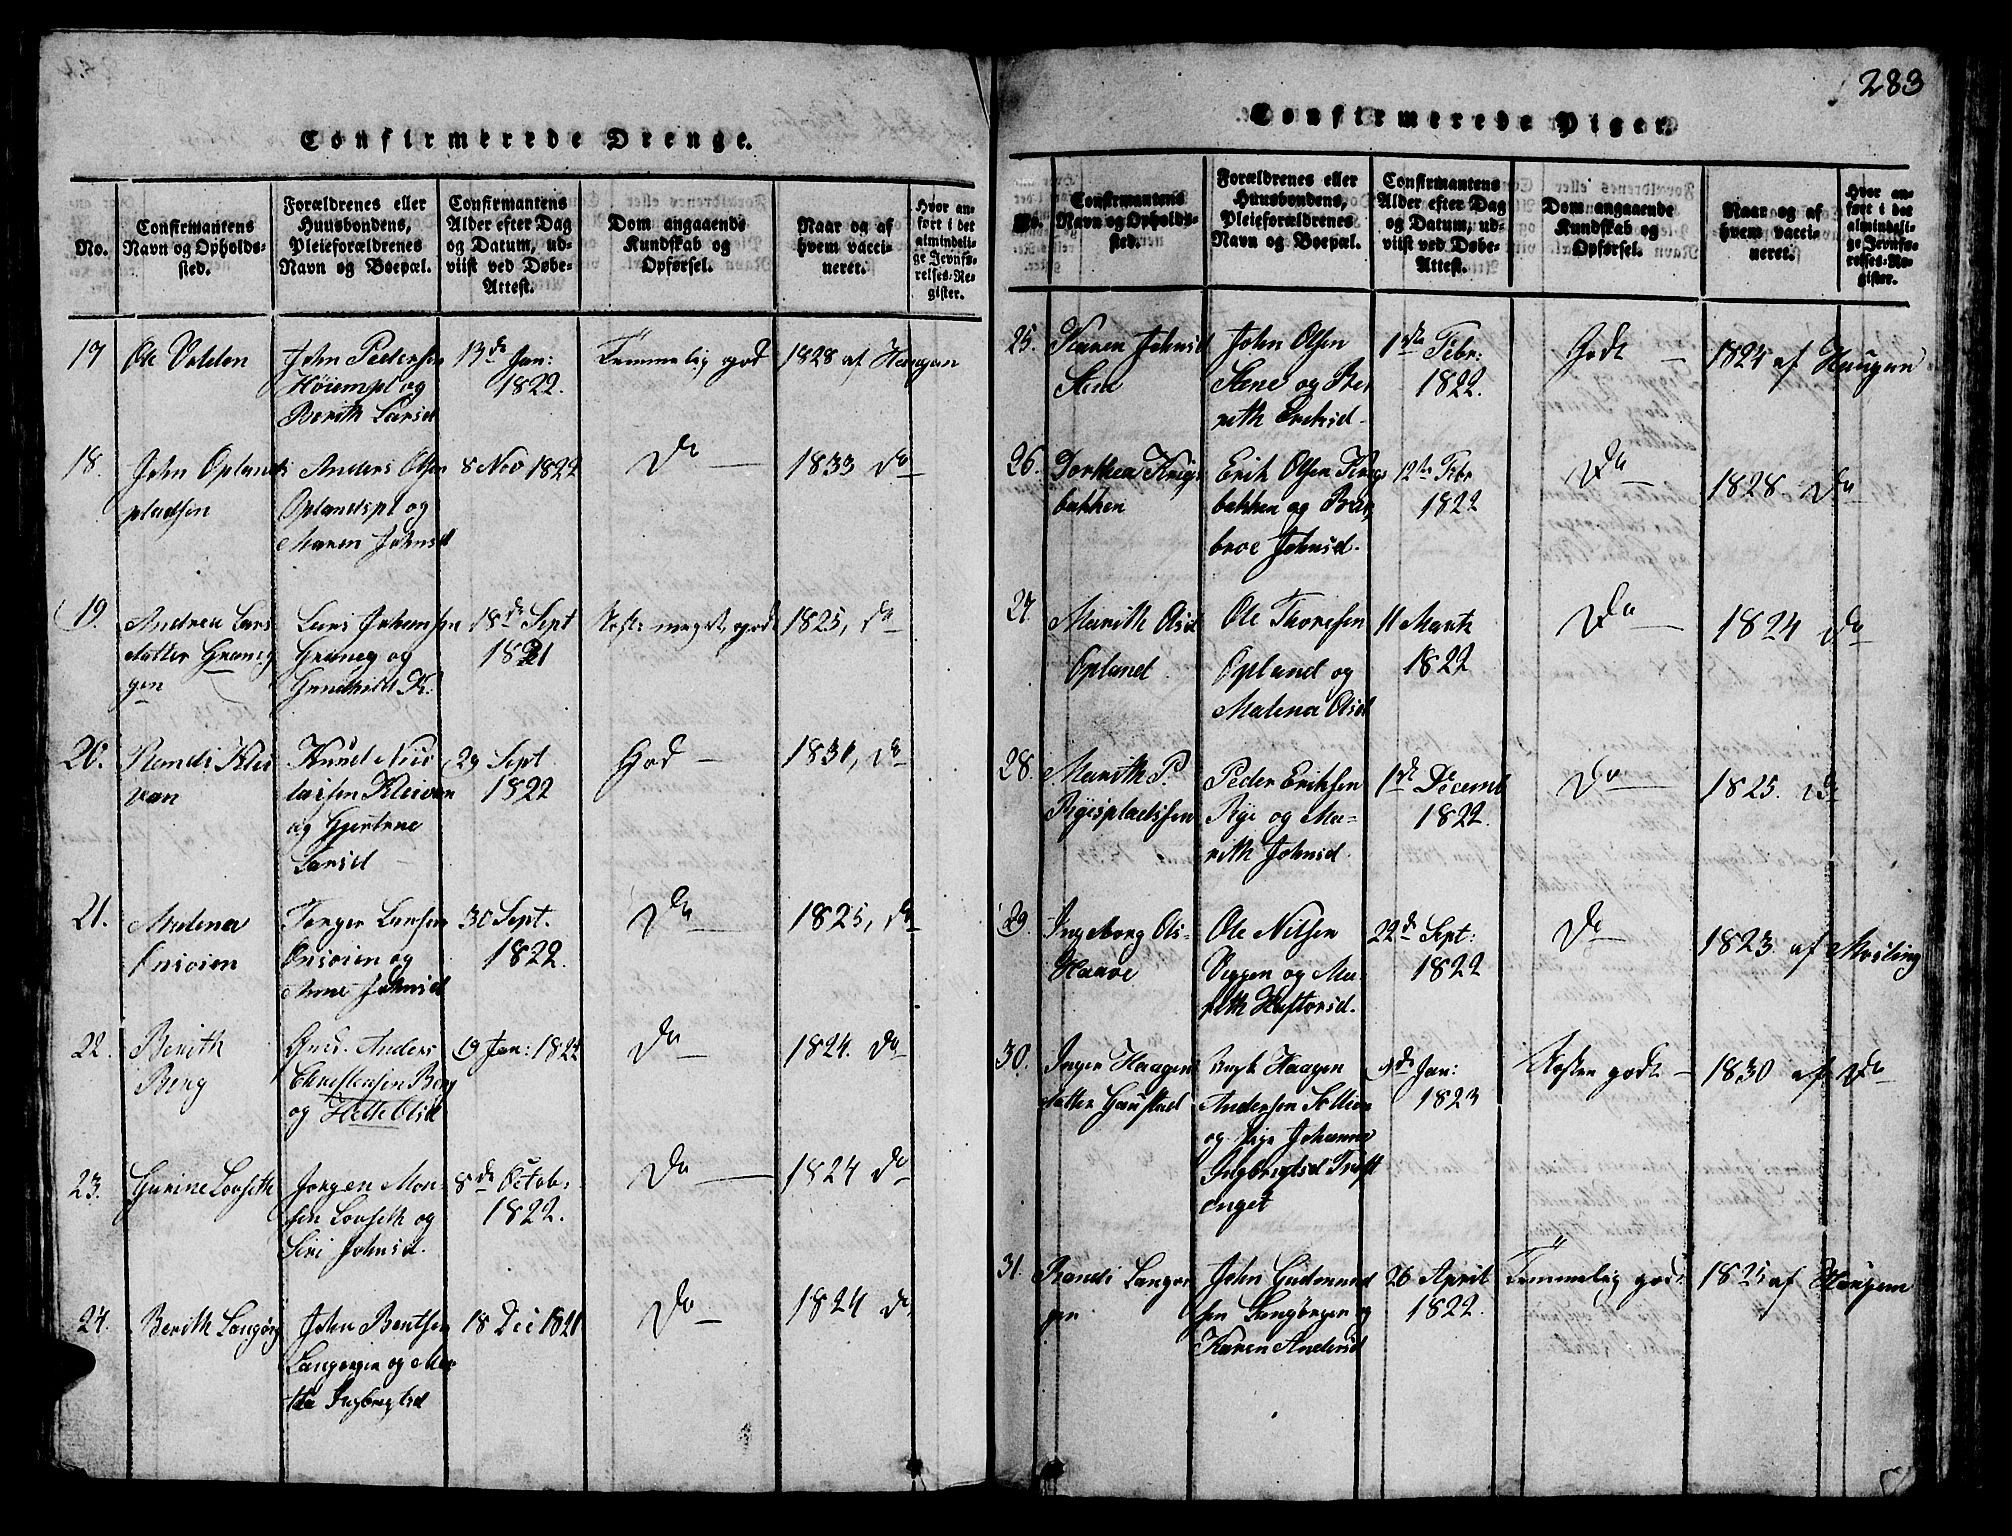 283
Confirmerede Drenge.
No.
Confirmantens
Navn og Opholds-
sted.
Forældrenes eller
Huusbondens,
Pleieforældrenes
Navn og Boepæl.
Confirmantens
Alder efter Dag
og Datum, ud-
viist ved Døbe-
Attest.
Dom angaaende
Kundskab og
Opførsel.
Naar og af
hvem vacci-
neret.
Hvor an-
ført i det
almindeli-
ge Jevnfø-
relses-Re-
gister.
17
Ole Volden
John Pedersen
Høiempl og
Berith Larsd
13de Jan:
1822.
Temmelig god
1828 af Haugan
18.
John Oplands
pladsen
Anders Olsen
Oplandspl og
Maren Johnsd
8 Nov 1822
Do
1833 Do
19.
Andrea Lars
datter
gen
Lars Johansen
og
Gunhild K.
18de Sept
1821
meget god
1825, Do
20.
Randi Klei
van
Knud Nico
laisen Kleivan
og Gjertrue
Larsd
29 Sept
1822
God
1831, Do
21.
Malena
Onsoien
Torger Larsen
Onsoien og
Anne Johnsd
30 Sept.
1822.
Do
1825, Do
22.
Berith
Berg
Anders
Christensen Berg
og Olsd
19 Jan: 1822
Do
1824. Do
23.
Gurine Louseth
Jorgen Mon-
sen Louseth og
Siri Johnsd.
8de Octob:
1822.
Do
1824 Do
24.
Berith Langørg
John Bentsen
Langorgen og Mar
tha Ingbrigtsd
18 Dec 1821
Do
1824 Do
Confirmerede Piger.
No.
Confirmantens
Navn og Opholds-
sted.
Forældrenes eller
Huusbondens,
Pleieforældrenes
Navn og Boepæl.
Confirmantens
Alder efter Dag
og Datum, ud-
viist ved Døbe-
Attest.
Dom angaaende
Kundskab og
Opførsel.
Naar og af
hvem vacci-
neret.
Hvor an-
ført i det
almindeli-
ge Jevnfø-
relses-Re-
gister.
25.
Karen Johnsd
Stene
John Olsen
Stene og Be
reth Eriksd.
1ste Febr:
1822.
Godt
1824 af Haugan
26.
Dorthea Krigs
bakken
Erik Olsen Krigs
bakken og Bar
broe Johnsd.
12te Febr
1822
Do
1828 Do
27
Marith Olsd
Opland
Ole Thoresen
Opland og
Malena Olsd
11 Marts
1822
Do
1824 Do
28.
Marith P.
Ryespladssen
Peder Eriksen
Rye og Ma-
rith Johnsd.
1de Decemb
1822.
Do
1825. Do
29.
Ingeborg Ols-
Haave
Ole Nilsen
Veggen og Ma-
reth Haftorsd.
22de Sept:
1822
Do
1823. af Mosling
30.
Inger Haagens
datter Haustad
Ungk Haagen
Andersen Sollien
og Pige Johanna
Ingbrigtsd
enget
4de Jan:
1823
godt
1830 af Do
31.
Randi Langør
gen
John Gudmund
sen Langørgen og
Karen Andersd
26 April
1822.
Temmelig godt
1825 af Haugan